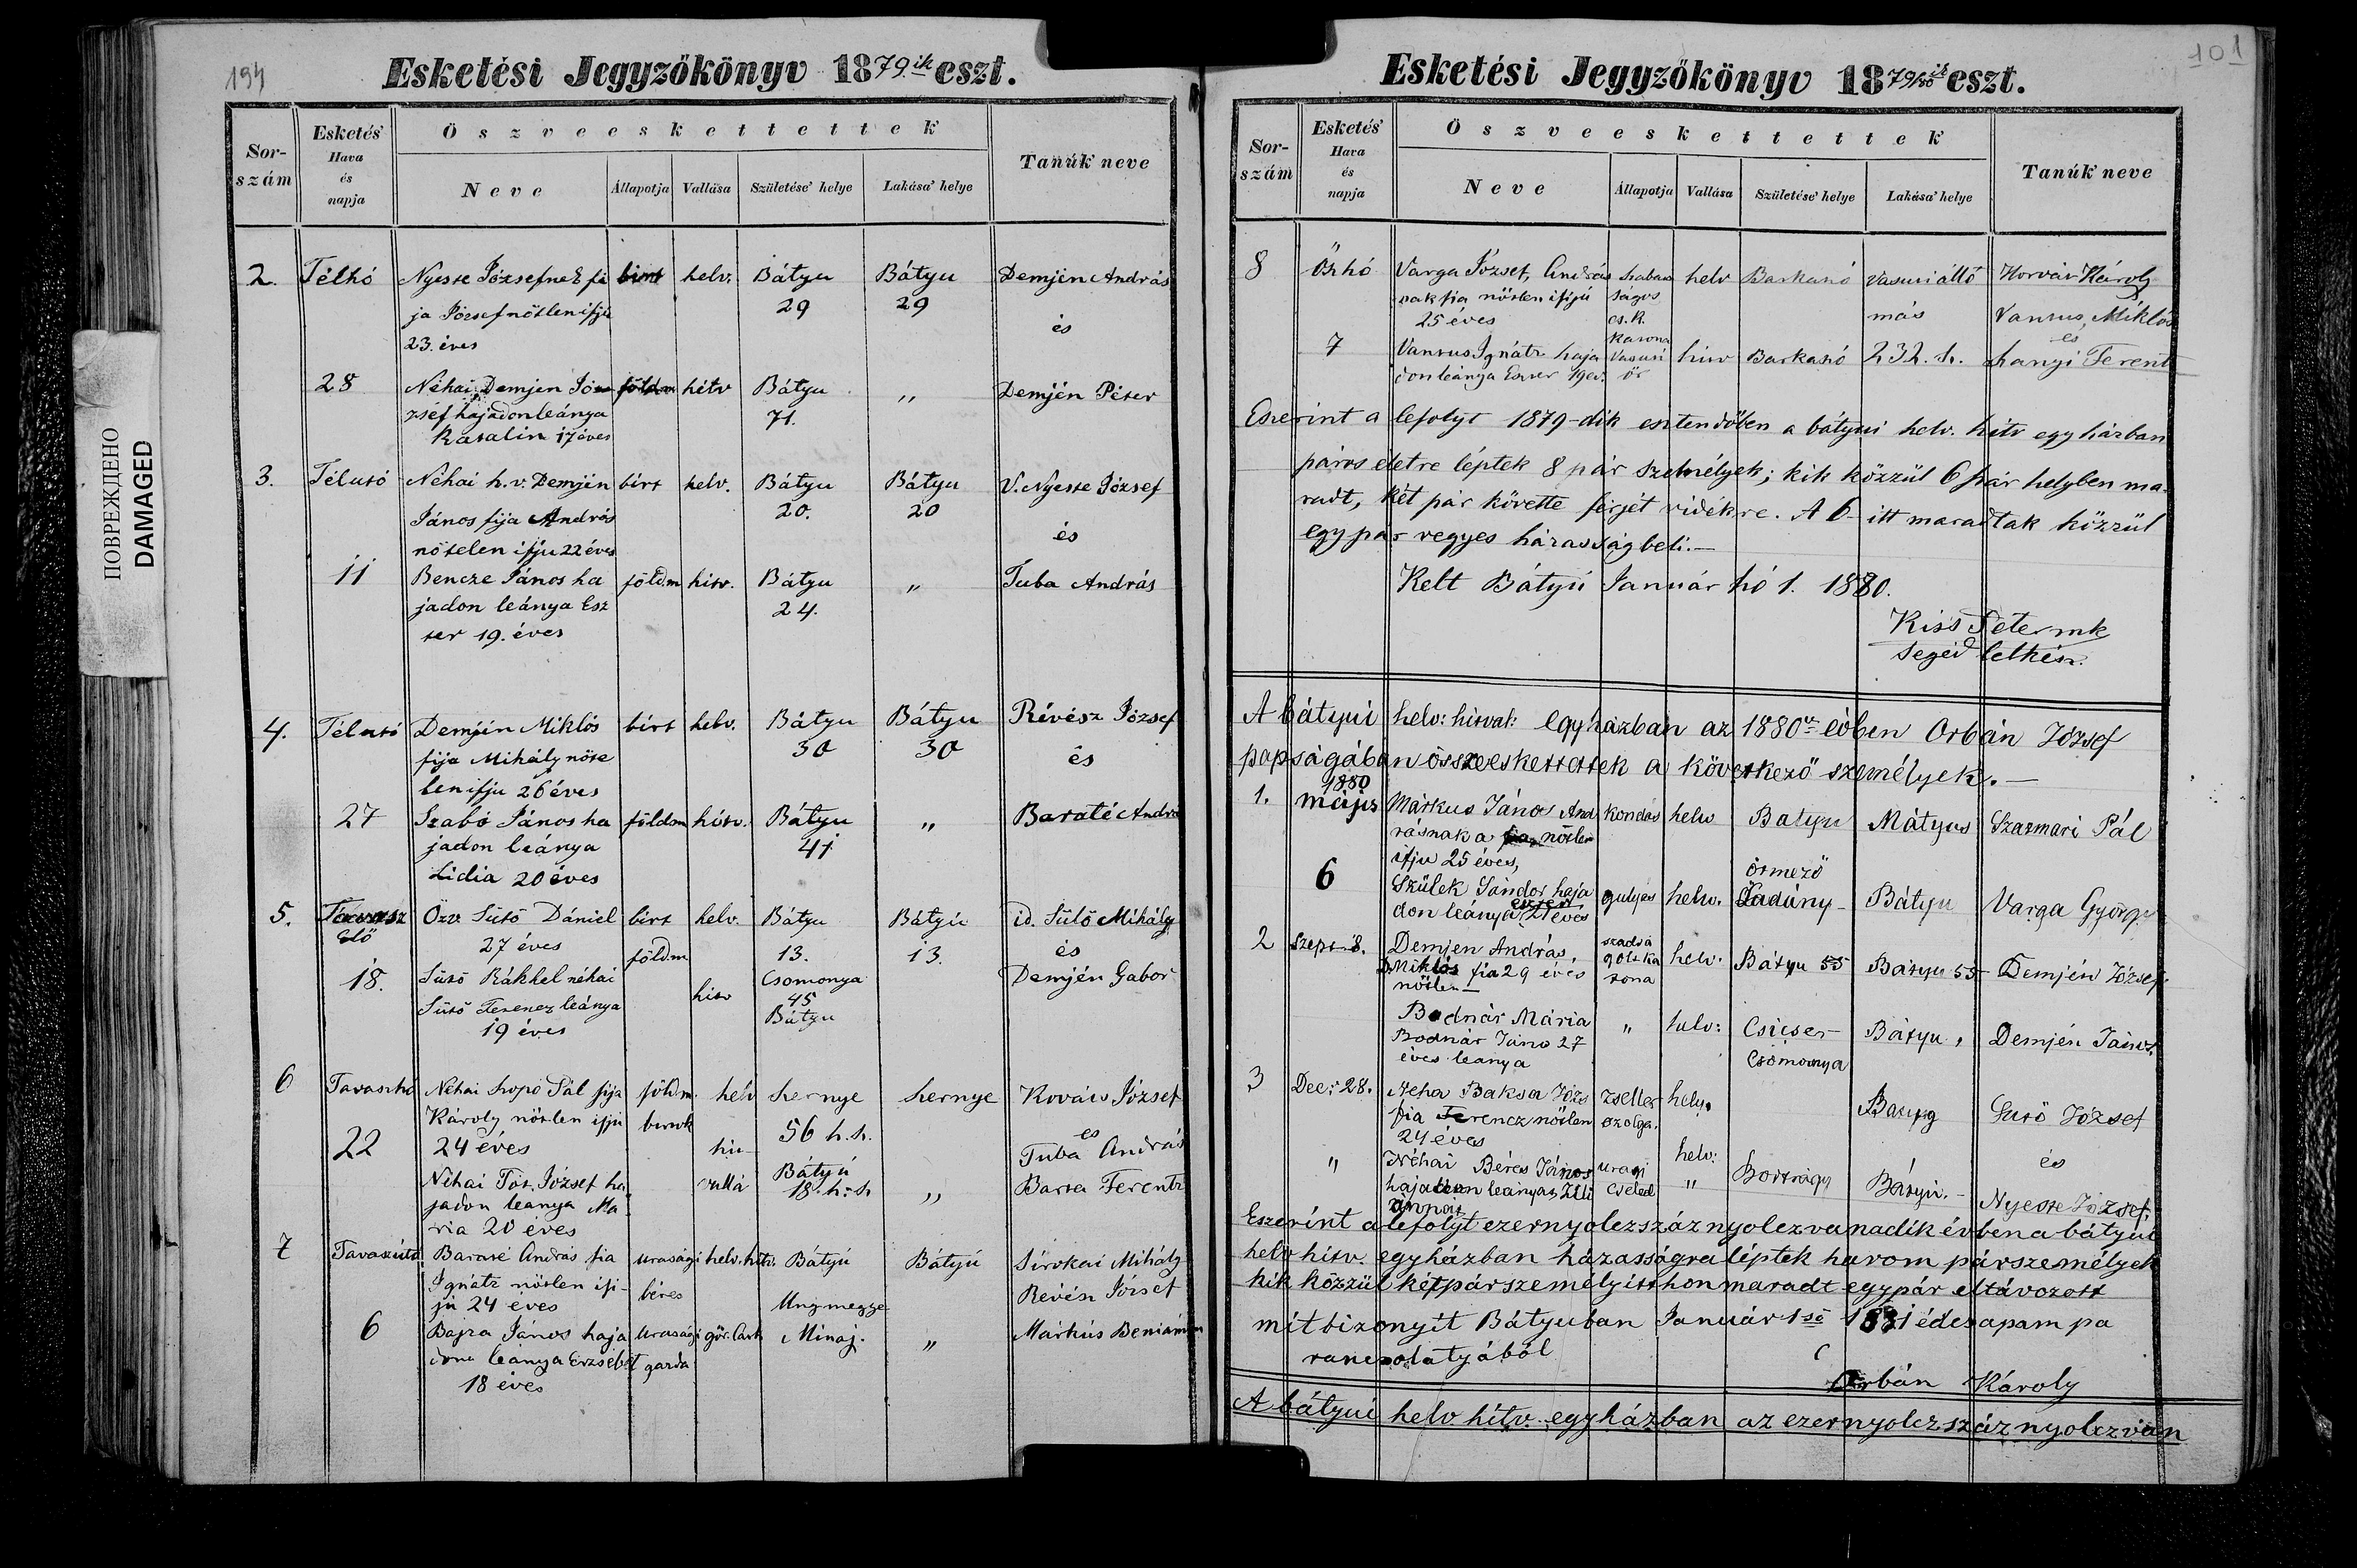 194
Esketési Jegyzőkönyv 1879ik eszt.
Sor-szám
Esketés' Hava és napja
Öszveeskettettek
Neve
Állapotja
Vallása
Születése' helye
Lakása' helye
Tanúk neve
2. Télhó Nyeste Józsefnek fi birt helv. Bátyu Bátyu Demjén András
ja József nőtlen ifju 29 29
23. éves és
28 Néhai Demjen Jó földm hitv Bátyu „ Demjén Péter
zséf hajadon leánya 71.
Katalin 17 éves
3. Télutó Néhai h. v. Demjén birt helv. Bátyu Bátyu V. Nyeste József
János fija András 20. 20
nőtelen ifju 22 éves és
11 Bencze János ha földm hitv. Bátyu „ Tuba András
jadon leánya Esz 24.
ter 19. éves
4. Télutó Demjén Miklós birt helv. Bátyu Bátyu Révész József
fija Mihály nőte 30 30 és
len ifju 26 éves
27 Szabó János ha földm hitv. Bátyu „ Baraté András
jadon leánya 41
Lidia 20 éves
5. Tavasz Özv Sütő Dániel birt helv. Bátyu Bátyu id. Sütő Mihály
elő 27 éves földm 13. 13. és
18. Sütő Rákhel néhai hitv Csomonya Demjén Gabor
Sütő Ferencz leánya 45
19 éves Bátyu
6 Tavaszhó Néhai Pál fija földm. helv hernye hernye Kovács József
Károly nőtlen ifju 56 h. s. és
22 24 éves hit Tuba András
Néhai Tót József ha vallá Bátyú „ Barta Ferentz
jadon leanya Ma 18. h. s.
ria 20 éves
7 Tavaszutó Baraté András fia urasági helv. hitv. Bátyú Bátyú Sirokai Mihály
Ignátz nőtlen ifi- béres Révész József
jú 24 éves Ung megye
6 Bajza János haja urasági gör. Cath Minaj. „ Márkus Beniámin
dona leánya Erzsebet
18 éves
101
Esketési Jegyzőkönyv 1879/80ik eszt.
Sor-szám
Esketés' Hava és napja
Öszveeskettettek
Neve
Állapotja
Vallása
Születése' helye
Lakása' helye
Tanúk neve
8 Őszhó Varga József, András szabad helv Barkaszó vasuti álló Horvát Károly
nak fia nőtlen ifijú ságos más
25 éves cs. k. Vansus Miklós
katona és
7 Vansus Ignátz haja Vasuti hitv Barkaszó 232. sz. Ferentz
don leánya Eszter 19 év. őr
Eszerint a lefolyt 1879-dik esztendőben a bátyui helv. hitv egyházban
páros életre léptek 8 pár személyek; kik közzül 6 pár helyben ma-
radt, két pár követte férjét vidékre. A 6 itt maradtak közzül
egy pár vegyes házasságbeli.-
Kelt Bátyú Január hó 1. 1880.
Kiss Péter mk
segéd lelkész.
A bátyui helv: hitval: egyházban az 1880ik évben Orbán József
papságában összeeskettettek a következő személyek.-
1880
1. május Márkus János And kondás helv Batyu Mátyus Szatmari Pál
rásnak a fia nőtlen
ifju 25 éves,
6 Szülek Sándor haja gulyas helv. Őrmező Bátyu Varga György
don leánya Eszter 21 éves Ladány
2 Szept 8. Demjen András, szabad helv. Bátyu 55 Bátyu 55 Demjén József
Miklós fia 29 éves ságos ka
nőtlen- tona
Bodnár Mária „ helv: Csicser- Bátyu, Demjén János
Bodnár Jáno 27 Csomonya
éves leanya
3 Dec: 28. Néha Baksa Józs zseller helv. Bátyu Sütő József
fia Ferencz nőtlen szolga.
24 éves és
„ Néhai Béres János uragi helv: Bátyu.- Nyeste József
hajadon leánya cseled „
Eszerint a lefolyt ezernyolczszáznyolczvanadik évben a bátyui
helv hitv. egyházban házasságra léptek három pár személyek
kik közzül két pár személy itthon maradt egy pár eltávozott
mit bizonyit Bátyuban Január 1ső 1881 édesapam pa
rancsolatjából
Orbán Károly
A bátyui helv hitv. egyházban az ezernyolczszáznyolczvan
ПОВРЕЖДЕНО
DAMAGED